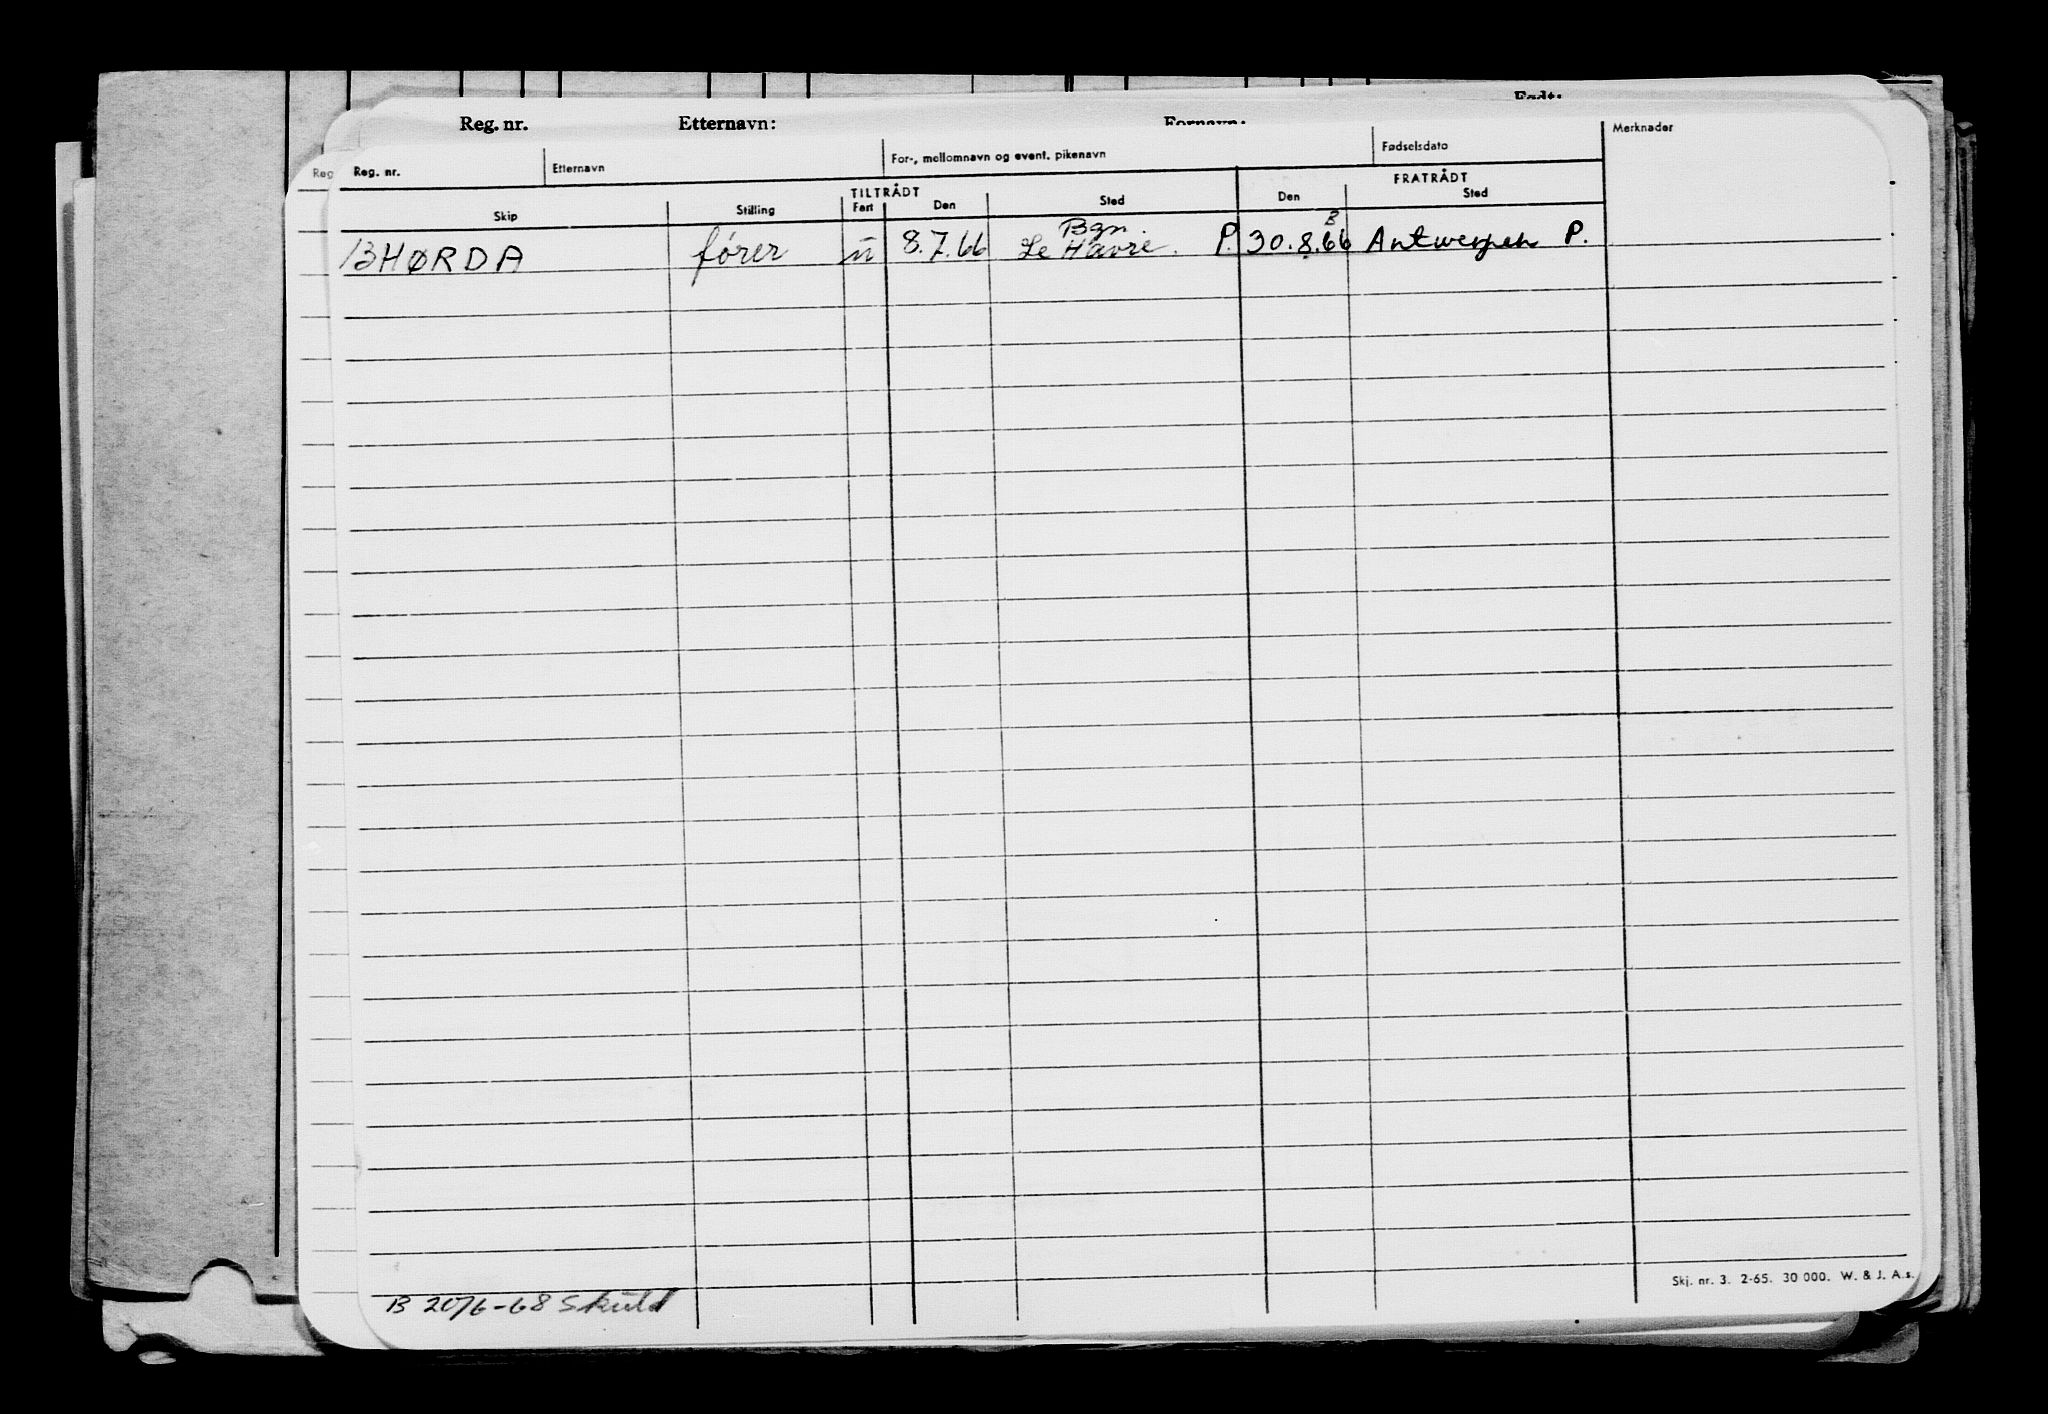 Født:
Reg. nr. Etternavn: Fornavn:
Reg. nr. Etternavn For-, mellomnavn og event. pikenavn Fødselsdato Merknader
Reg
TILTRÅDT FRATRÅDT
Skip Stilling Fart Den Sted Den Sted
Bgn. B
B HØRDA fører u 8.7.66 Le Havre. P. 30.8.66 Antwerpen P.
Skj. nr. 3. 2-65. 30 000. W. & J. A.s.
B 20/6-68 Skuld